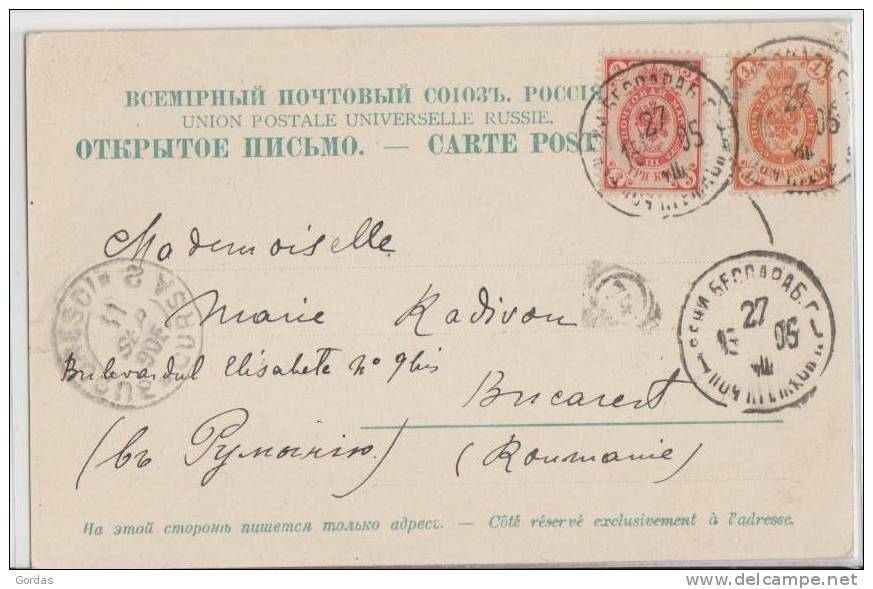 ВСЕМІРНЫЙ ПОЧТОВЫЙ СОЮЗЪ. РОССІЯ
UNION POSTALE UNIVERSELLE RUSSIE.
ОТКРЫТОЕ ПИСЬМО. — CARTE POST
БЕССАРАБ. Г.
27
05
VIII
27
05
VIII
3
ТРИ КОП.
1
Mademoiselle
Marie Radivon
Bulevardul Elisabeta nº 9 bis
Bucarest
(въ Румынію) (Roumanie)
БЕССАРАБ. Г.
27
05
VIII
На этой сторонѣ пишется только адресъ. — Côté réservé exclusivement à l'adresse.
Gordas
www.delcampe.net